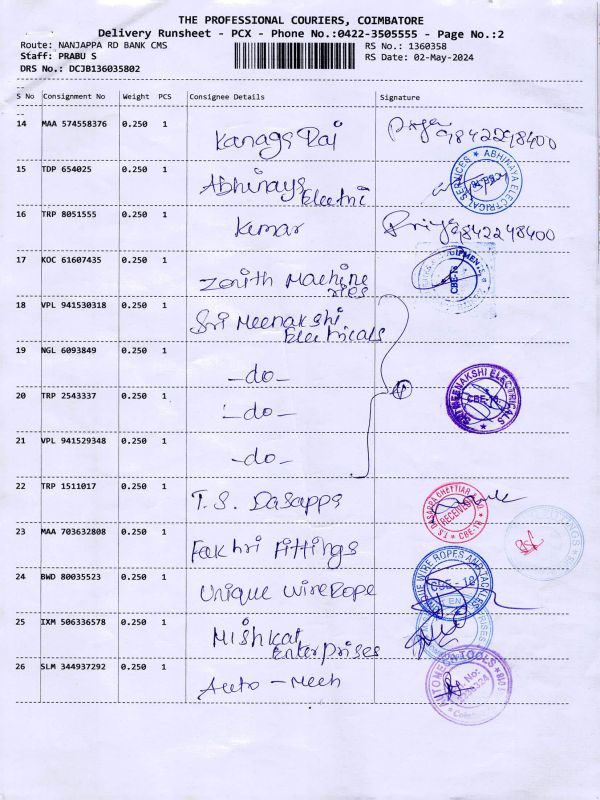 THE PROFESSIONAL COURIERS, COIMBATORE
Delivery Runsheet - PCX - Phone No.:0422-3505555 - Page No.:2
Route: NANJAPPA RD BANK CMS RS No.: 1360358
Staff: PRABU S RS Date: 02-May-2024
DRS No.: DCJB136035802
S No Consignment No Weight PCS Consignee Details Signature
14 MAA 574558376 0.250 1 Kanags Raj 9842298400
15 TDP 654025 0.250 1 Abhinays Electri ABHINAYA ELECTRICAL SERVICES
16 TRP 8051555 0.250 1 Kumar Priya 9842248400
17 KOC 61607435 0.250 1 Zenith Machine ries CBE-18
18 VPL 941530318 0.250 1 Sri Meenakshi Electricals
19 NGL 6093849 0.250 1 -do-
20 TRP 2543337 0.250 1 -do- SRI MEENAKSHI ELECTRICALS CBE-18.
21 VPL 941529348 0.250 1 -do-
22 TRP 1511017 0.250 1 T.S. Dasappa T.S. DASAPPA CHETTIAR RECEIVED CBE-18
23 MAA 703632808 0.250 1 Fakhri Fittings
24 BWD 80035523 0.250 1 Unique Wire Rope UNIQUE WIRE ROPES AND TACKLES CBE-18
25 IXM 506336578 0.250 1 Mishkat Enterprises
26 SLM 344937292 0.250 1 Auto-Mech AUTOMECH TOOLS